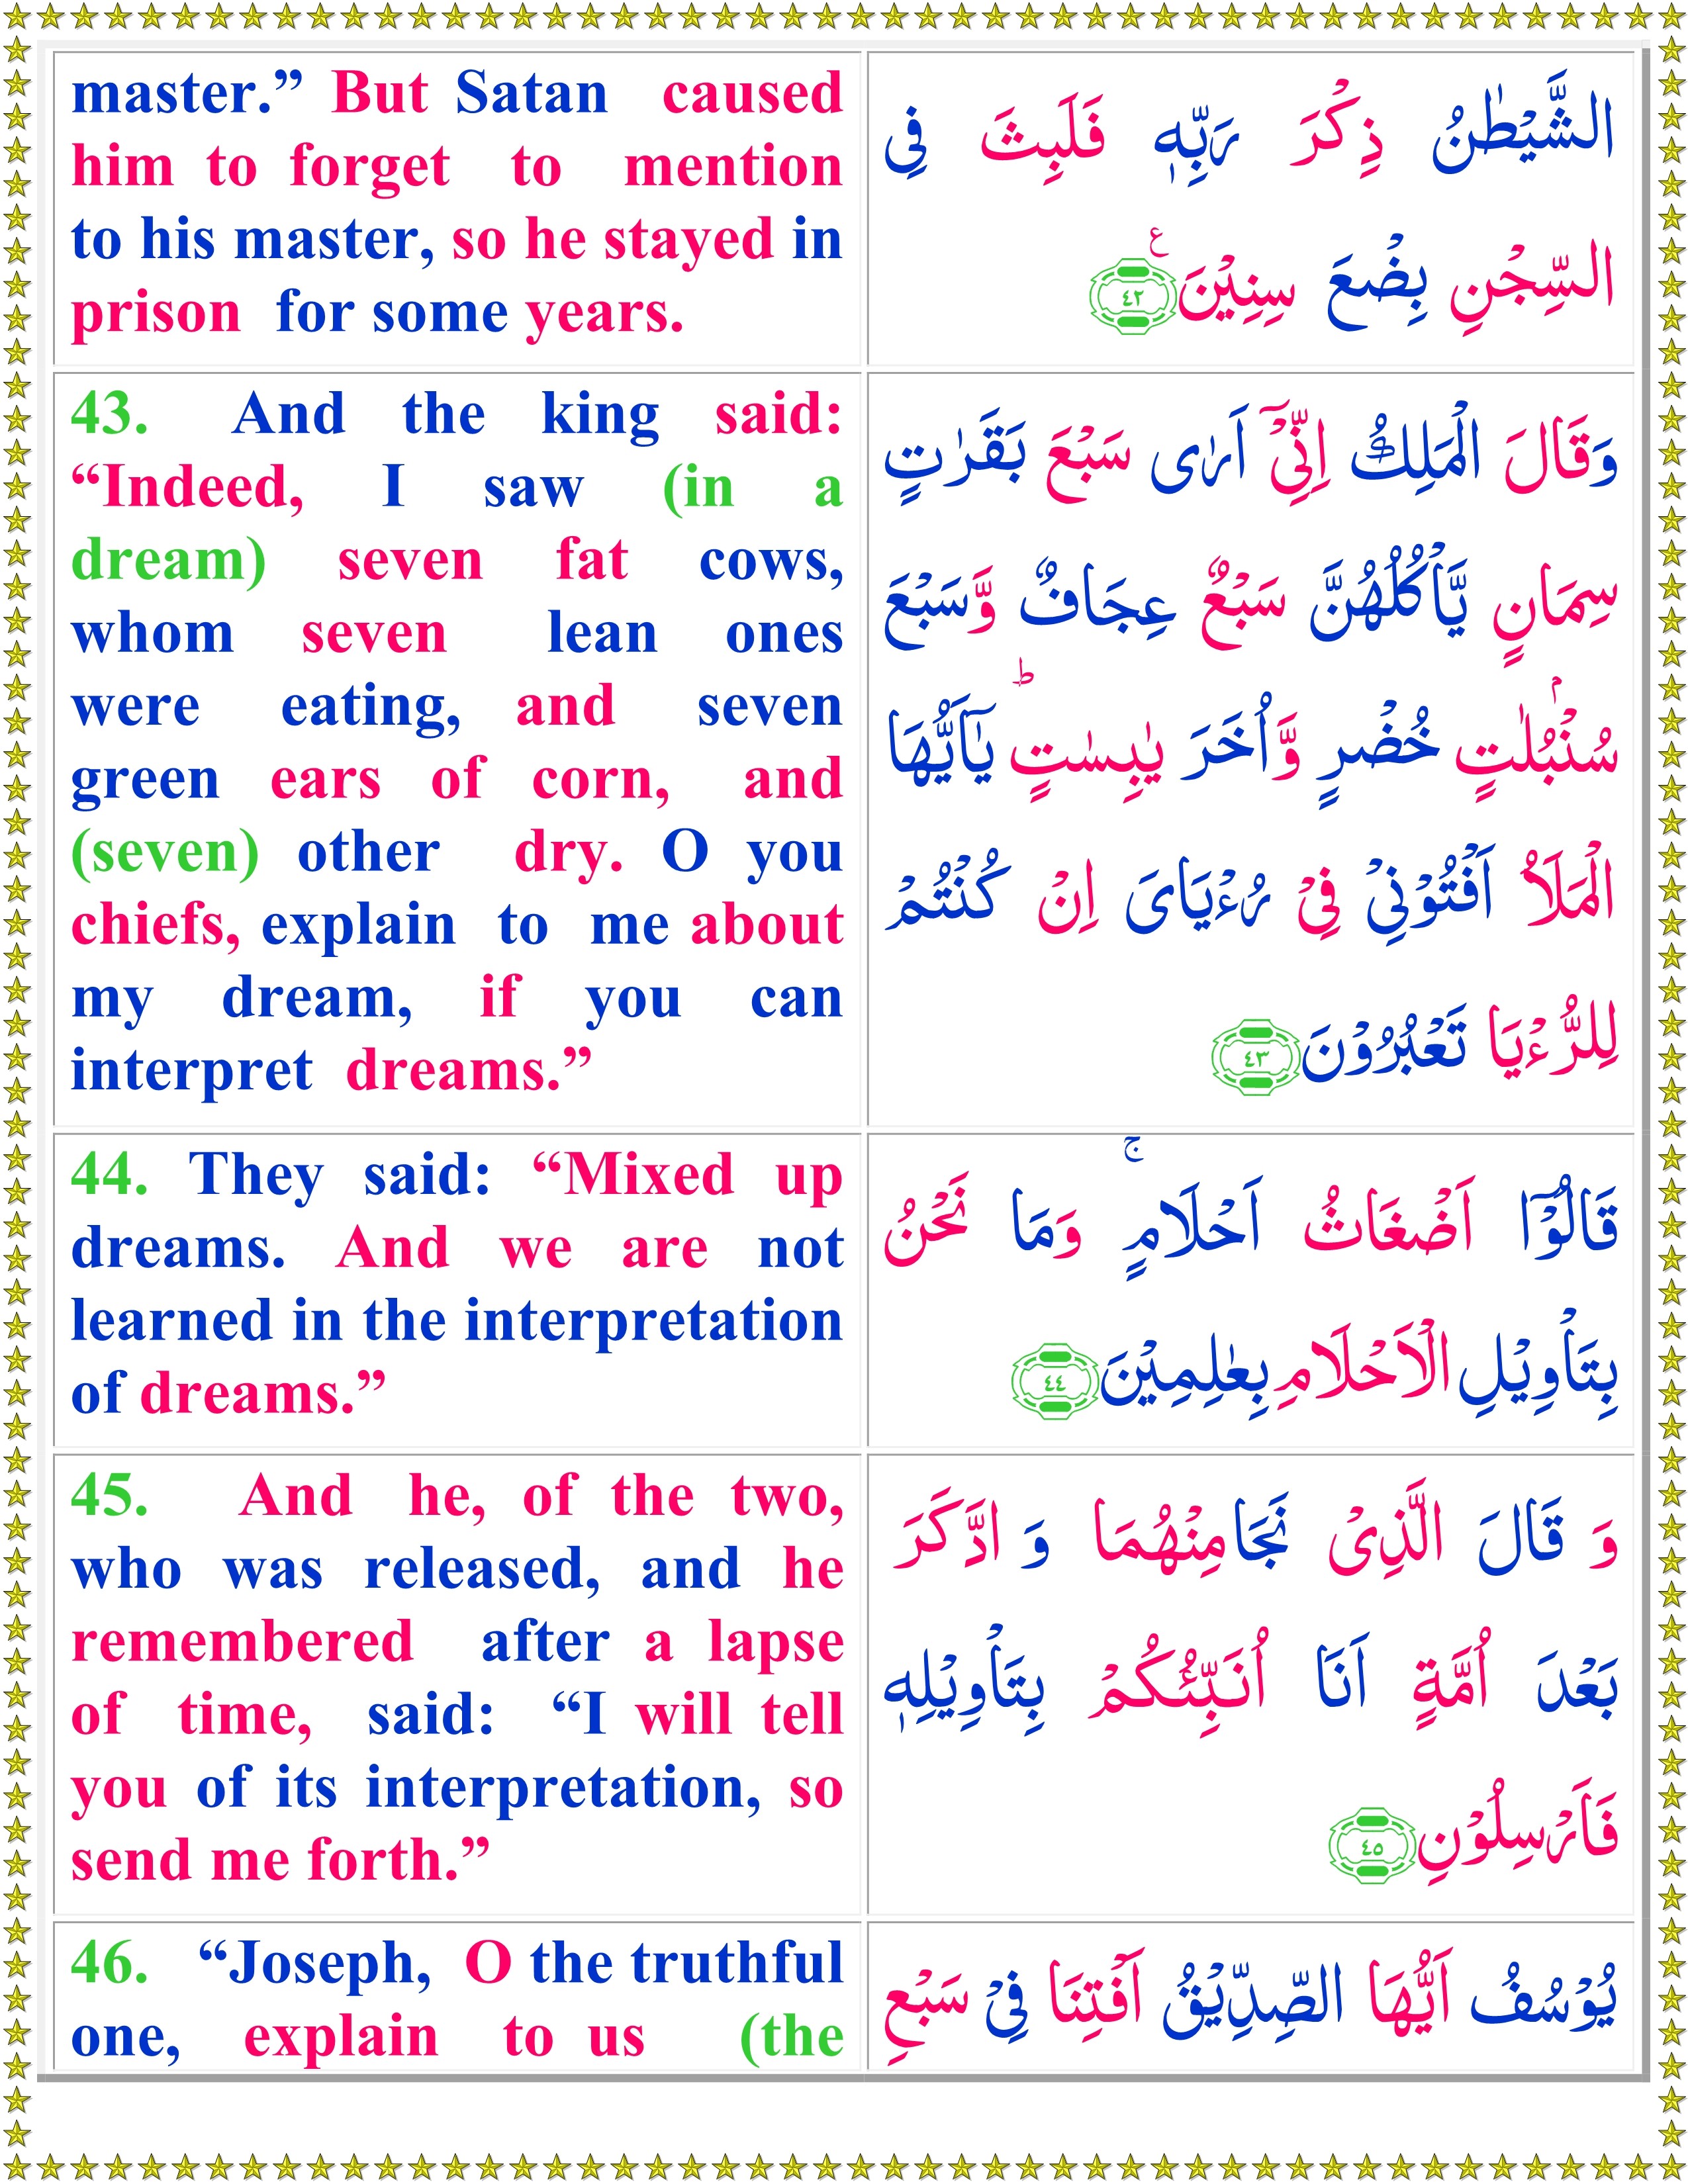 master.” But Satan caused
him to forget to mention
to his master, so he stayed in
prison for some years.
الشَّيْطٰنُ ذِكْرَ رَبِّهٖ فَلَبِثَ فِى
السِّجْنِ بِضْعَ سِنِيْنَ ع ٤٢
43. And the king said:
“Indeed, I saw (in a
dream) seven fat cows,
whom seven lean ones
were eating, and seven
green ears of corn, and
(seven) other dry. O you
chiefs, explain to me about
my dream, if you can
interpret dreams.”
وَقَالَ الْمَلِكُ اِنِّىْۤ اَرٰى سَبْعَ بَقَرٰتٍ
سِمَانٍ يَّاْكُلُهُنَّ سَبْعٌ عِجَافٌ وَّسَبْعَ
سُنْۢبُلٰتٍ خُضْرٍ وَّاُخَرَ يٰبِسٰتٍؕ يٰۤاَيُّهَا
الْمَلَاُ اَفْتُوْنِىْ فِىْ رُءْيَاىَ اِنْ كُنْتُمْ
لِلرُّءْيَا تَعْبُرُوْنَ ٤٣
44. They said: “Mixed up
dreams. And we are not
learned in the interpretation
of dreams.”
قَالُوْۤا اَضْغَاثُ اَحْلَامٍۚ وَمَا نَحْنُ
بِتَاْوِيْلِ الْاَحْلَامِ بِعٰلِمِيْنَ ٤٤
45. And he, of the two,
who was released, and he
remembered after a lapse
of time, said: “I will tell
you of its interpretation, so
send me forth.”
وَ قَالَ الَّذِىْ نَجَا مِنْهُمَا وَ ادَّكَرَ
بَعْدَ اُمَّةٍ اَنَا اُنَبِّئُكُمْ بِتَاْوِيْلِهٖ
فَاَرْسِلُوْنِ ٤٥
46. “Joseph, O the truthful
one, explain to us (the
يُوْسُفُ اَيُّهَا الصِّدِّيْقُ اَفْتِنَا فِىْ سَبْعِ